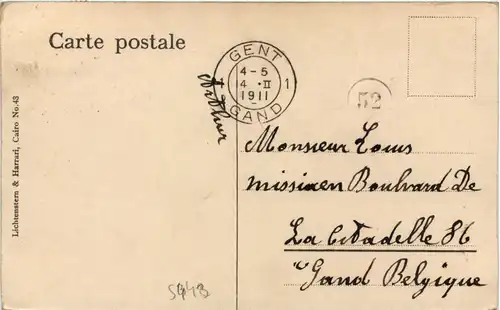 Carte postale
GENT
4-5
4 · II
1911
1
GAND
52
Arthur
Monsieur Louis
missiaen Boulvard De
La Citadelle 86
"Gand Belgique
Lichtenstern & Harrari, Cairo No.43